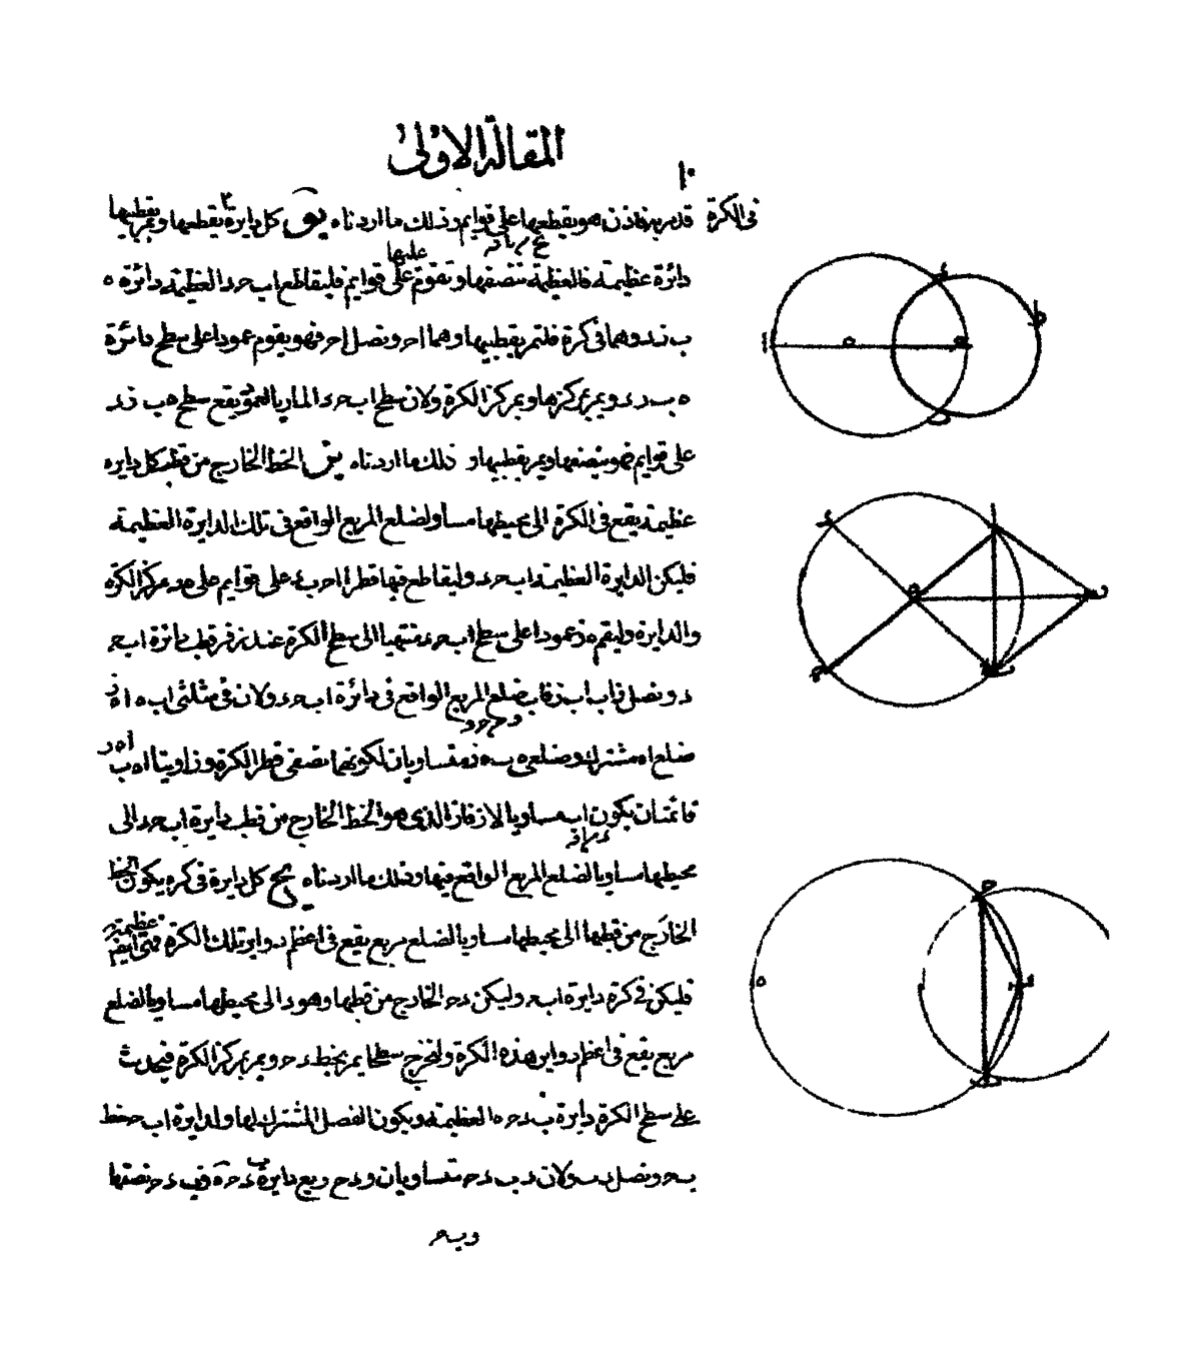 المقالة الاولى
١٠
فى الكرة قد مر بها فاذن هو يقطعها على قوايم وذلك ما اردناه يو كل دايرة يقطعها ويمر بقطبيها
عليها
دائرة عظيمة فالعظيمة تنصفها وتقوم على قوايم فليقاطع اب حد العظيمة دائرة ه
ب ز د وهما فى كرة فلتمر بقطبيها وهما ا ح ونصل ا ح فهو يقوم عمودا على سطح دائرة
ه ب ز د ويمر بمركزها وبمركز الكرة ولان سطح اب حد المار بالعمود يقع سطح ه ب ز د
على قوايم فهو ينصفها ويمر بقطبيها و ذلك ما اردناه يز الخط الخارج من قطب كل دايره
عظيمة يقع فى الكرة الى محيطها مساو لضلع المربع الواقع فى تلك الدايرة العظيمة
فليكن الدايرة العظيمة اب حد وليقاطع فيها قطرا ا ح ب د على قوايم على ه مركز الكرة
والدايرة وليقم ه ز عمودا على سطح اب حد منتهيا الى سطح الكرة عند ز فز قطب دائرة اب ح
د ونصل ز ا ب اب ز فاب ضلع المربع الواقع فى دائرة اب حد ولان فى مثلثى اب ه ا ه ز
ضلع اه مشترك وضلعى ه ب ه ز متساويان لكونهما نصفى قطر الكرة وزاويتا ا ه ب ا ه ز
قائمتان يكون اب مساويا لا ز فاز الذى هو الخط الخارج من قطب دايرة اب حد الى
محيطها مساويا لضلع المربع الواقع فيها وذلك ما اردناه يح كل دايرة فى كره يكون الخط
الخارج من قطبها الى محيطها مساويا لضلع مربع يقع فى اعظم دواير تلك الكرة فهى ايضا عظيمة
فليكن فى كرة دايرة اب ح وليكن د ح الخارج من قطبها وهو د الى محيطها مساويا لضلع
مربع يقع فى اعظم دواير هذه الكرة ولنخرج سطحا يمر بخط د ح ويمر بمركز الكرة فيحدث
على سطح الكرة دايرة ب د ح ه العظيمة ويكون الفصل المشترك لها ولدايرة اب ح خط
ب ح ونصل د ب ولان د ب د ح متساويان و د ح وربع دايرة ب د ح ه فب د ح نصفها
وب ح